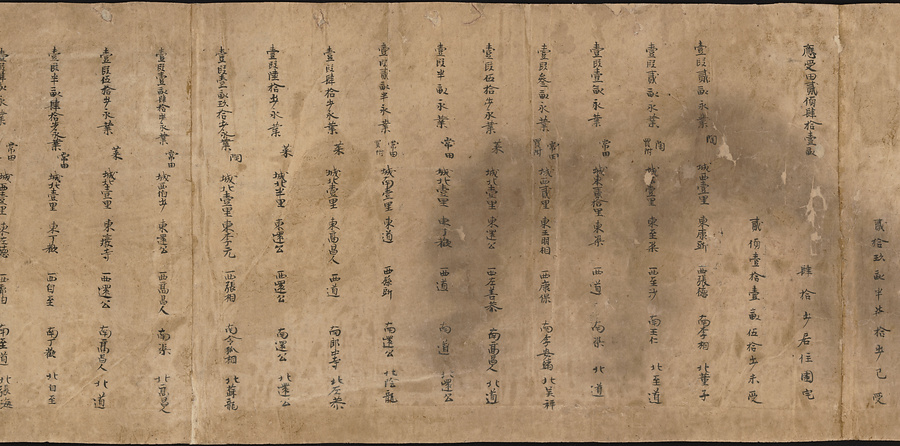 貳拾玖畝半卅拾步已受
應受田貳頃肆拾壹畝
肆拾步居住園宅
貳頃壹拾壹畝伍拾步未受
壹段貳畝永業 陶 城西壹里 東康 西張德 南李相 北董子
壹段貳畝永業 陶 買附 城北壹里 東至渠 西至沙 南王仁 北至道
壹段壹畝永業 常田 城東貳拾里 東渠 西道 南渠 北道
壹段叁畝永業 常田 買附 城西貳里 東王羽相 西康保 南李 北吳祥
壹段伍拾步永業 菜 城北壹里 東運公 西左善祭 南高昌人 北道
壹段半畝永業 常田 城北壹里 東丁歡 西道 南道 北運公
壹段貳畝半永業 常田 買附 城南壹里 東道 西孫 南道 北陰龍
壹段肆拾步永業 菜 城北壹里 東高昌人 西道 南郎中寺 北
壹段陸拾步永業 菜 城北壹里 東運公 西運公 南運公 北運公
壹段壹畝玖拾步永業 陶 城北壹里 東李元 西張相 南令狐相 北蘇龍
壹段壹畝肆拾步永業 常田 城西伯步 東運公 西高昌人 南渠 北高昌人
壹段伍拾步永業 菜 城北壹里 東寺 西運公 南高昌人 北道
壹段半畝肆拾步永業 常田 城北壹里 東丁歡 西自至 南丁歡 北自至
永業 常田 里 南至道